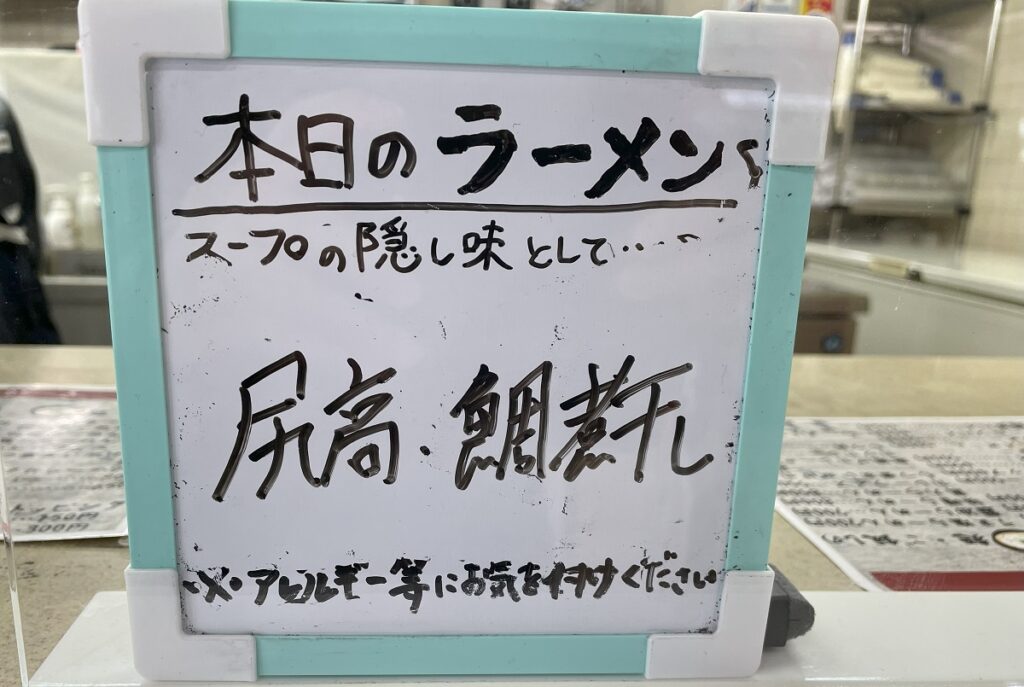 本日のラーメン
スープの隠し味として・・・
尻高・鯛煮干し
※アレルギー等にお気を付けください